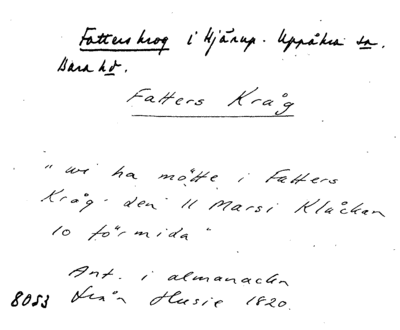 Fatters krog i Hjärup. Uppåkra sn.
Bara hd.
Fatters Kråg
"wi ha mötte i Fatters
Kråg den 11 Marsi Klåckan
10 förmida"
Ant. i almanackn
8053 från Husie 1820.